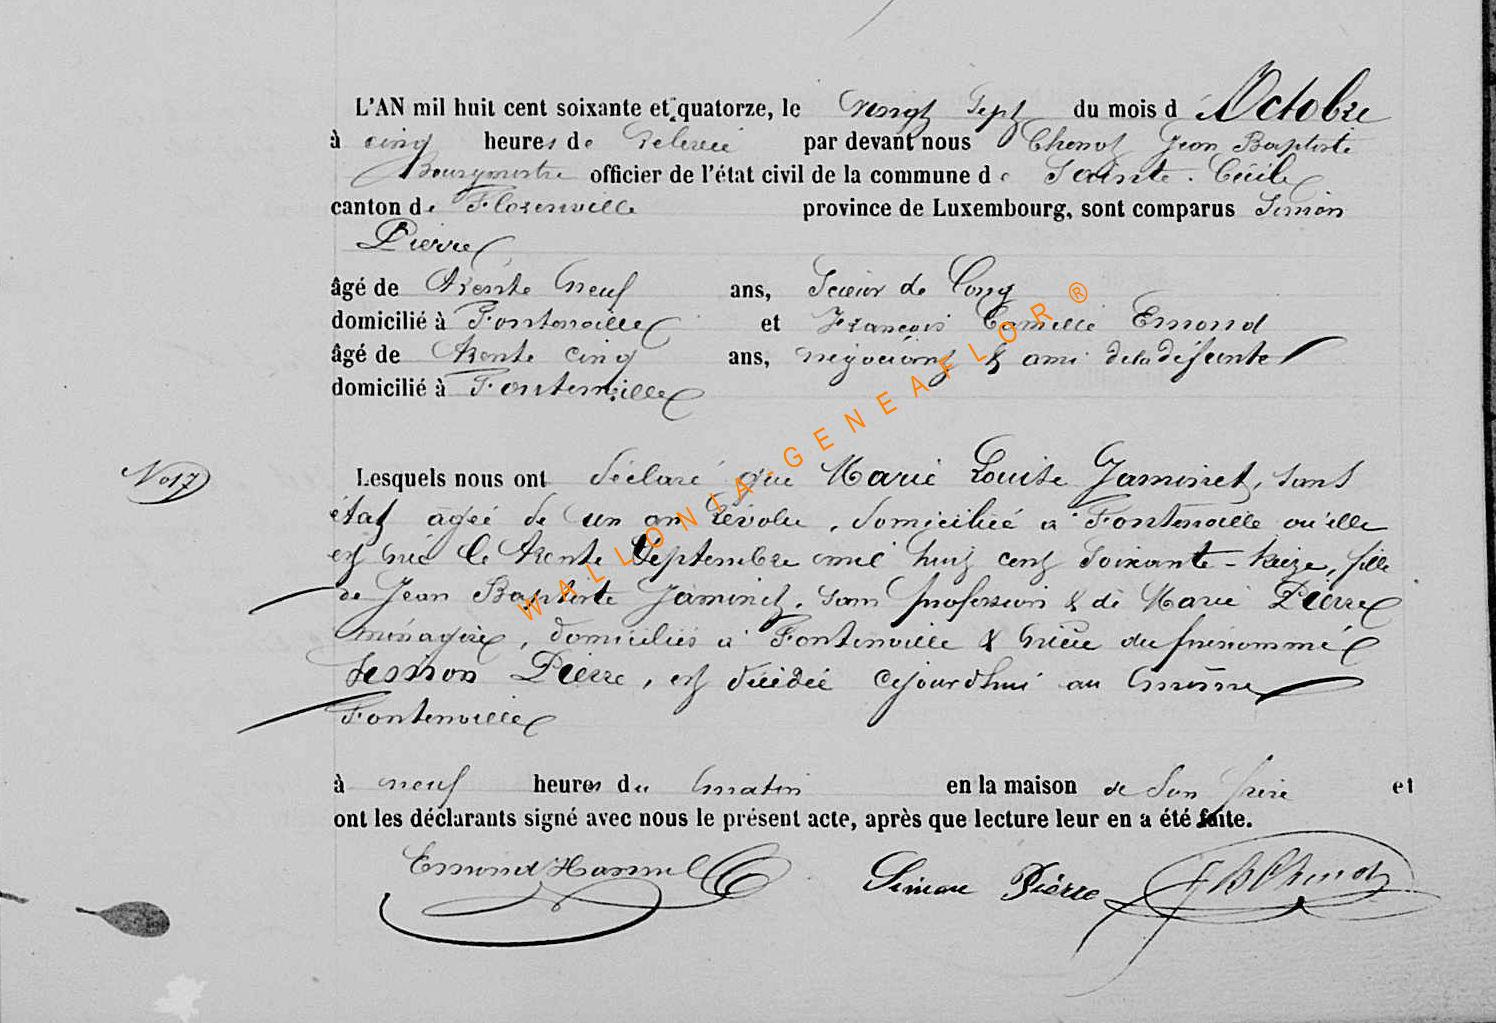 L'AN mil huit cent soixante et quatorze, le vingt sept du mois d'Octobre
à cinq heures de relevée par devant nous Chenot Jean Baptiste
Bourgmestre officier de l'état civil de la commune de Sainte-Cécile
canton de Florenville province de Luxembourg, sont comparus Simon
Pierre
âgé de trente neuf ans, Scieur de Long
domicilié à Fontenoille et François Camille Emond
âgé de trente cinq ans, négociant & ami de la défunte
domicilié à Fontenoille
No 17
Lesquels nous ont déclaré que Marie Louise Jaminet, sans
état agée de un an révolu, domiciliée à Fontenoille où elle
est née le trente Septembre mil huit cent Soixante-treize, fille
de Jean Baptiste Jaminet, sans profession & de Marie Pierre
ménagère, domiciliés à Fontenoille & nièce du prénommé
Simon Pierre, est décédée cejourd'hui au même
Fontenoille
à neuf heures du matin en la maison de Son père et
ont les déclarants signé avec nous le présent acte, après que lecture leur en a été faite.
Emond Simon Pierre JB Chenot
WALLONIA-GENEAFLOR ®